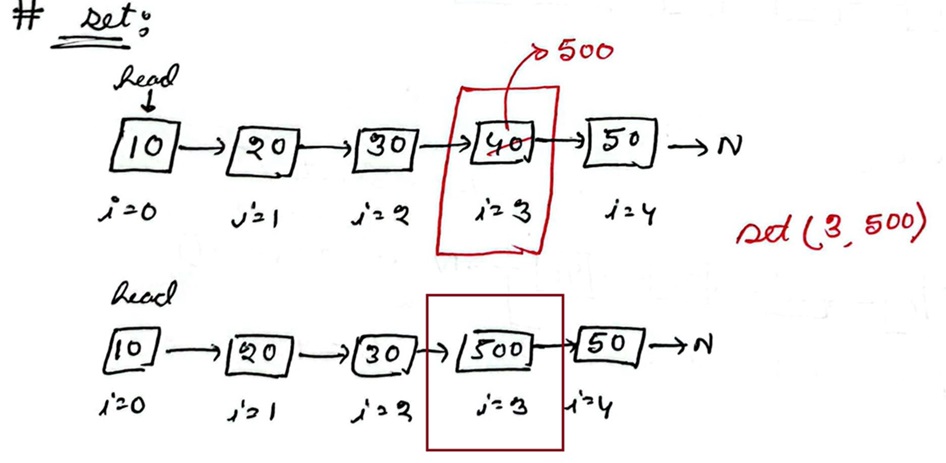 # set:
head
500
10 → 20 → 30 → 40 → 50 → N
i=0 i=1 i=2 i=3 i=4
set (3, 500)
head
10 → 20 → 30 → 500 → 50 → N
i=0 i=1 i=2 i=3 i=4